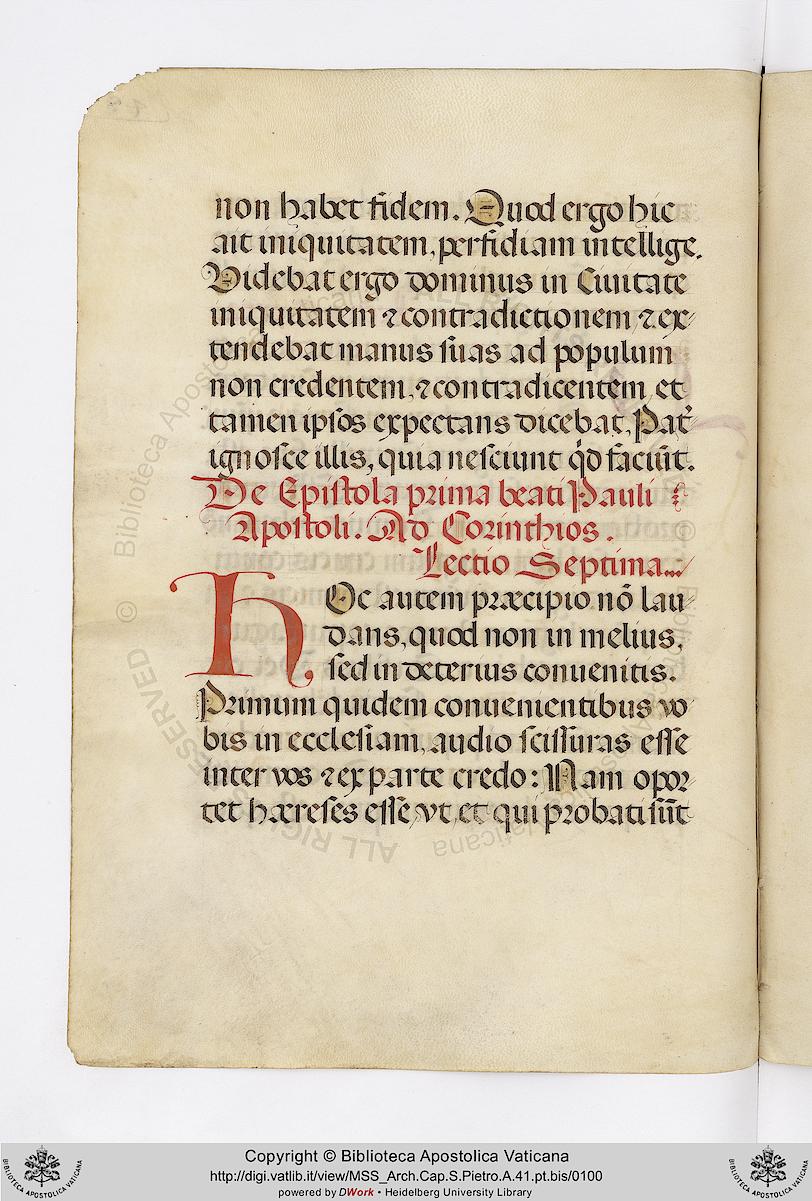 non habet fidem. Quod ergo hic
ait iniquitatem, perfidiam intellige.
Videbat ergo dominus in Ciuitate
iniquitatem ⁊ contradictionem ⁊ ex-
tendebat manus suas ad populum
non credentem, ⁊ contradicentem et
tamen ipsos expectans dicebat, Pat̄
ignosce illis, quia nesciunt qd̄ faciūt.
De Epistola prima beati Pauli
Apostoli. Ad Corinthios.
Lectio Septima...
HOc autem præcipio nō lau-
dans, quod non in melius,
sed in deterius conuenitis.
Primum quidem conuenientibus vo
bis in ecclesiam, audio scissuras esse
inter vos ⁊ ex parte credo: Nam opor-
tet hæreses esse, vt, et qui probati sūt
Copyright © Biblioteca Apostolica Vaticana
http://digi.vatlib.it/view/MSS_Arch.Cap.S.Pietro.A.41.pt.bis/0100
powered by DWork • Heidelberg University Library